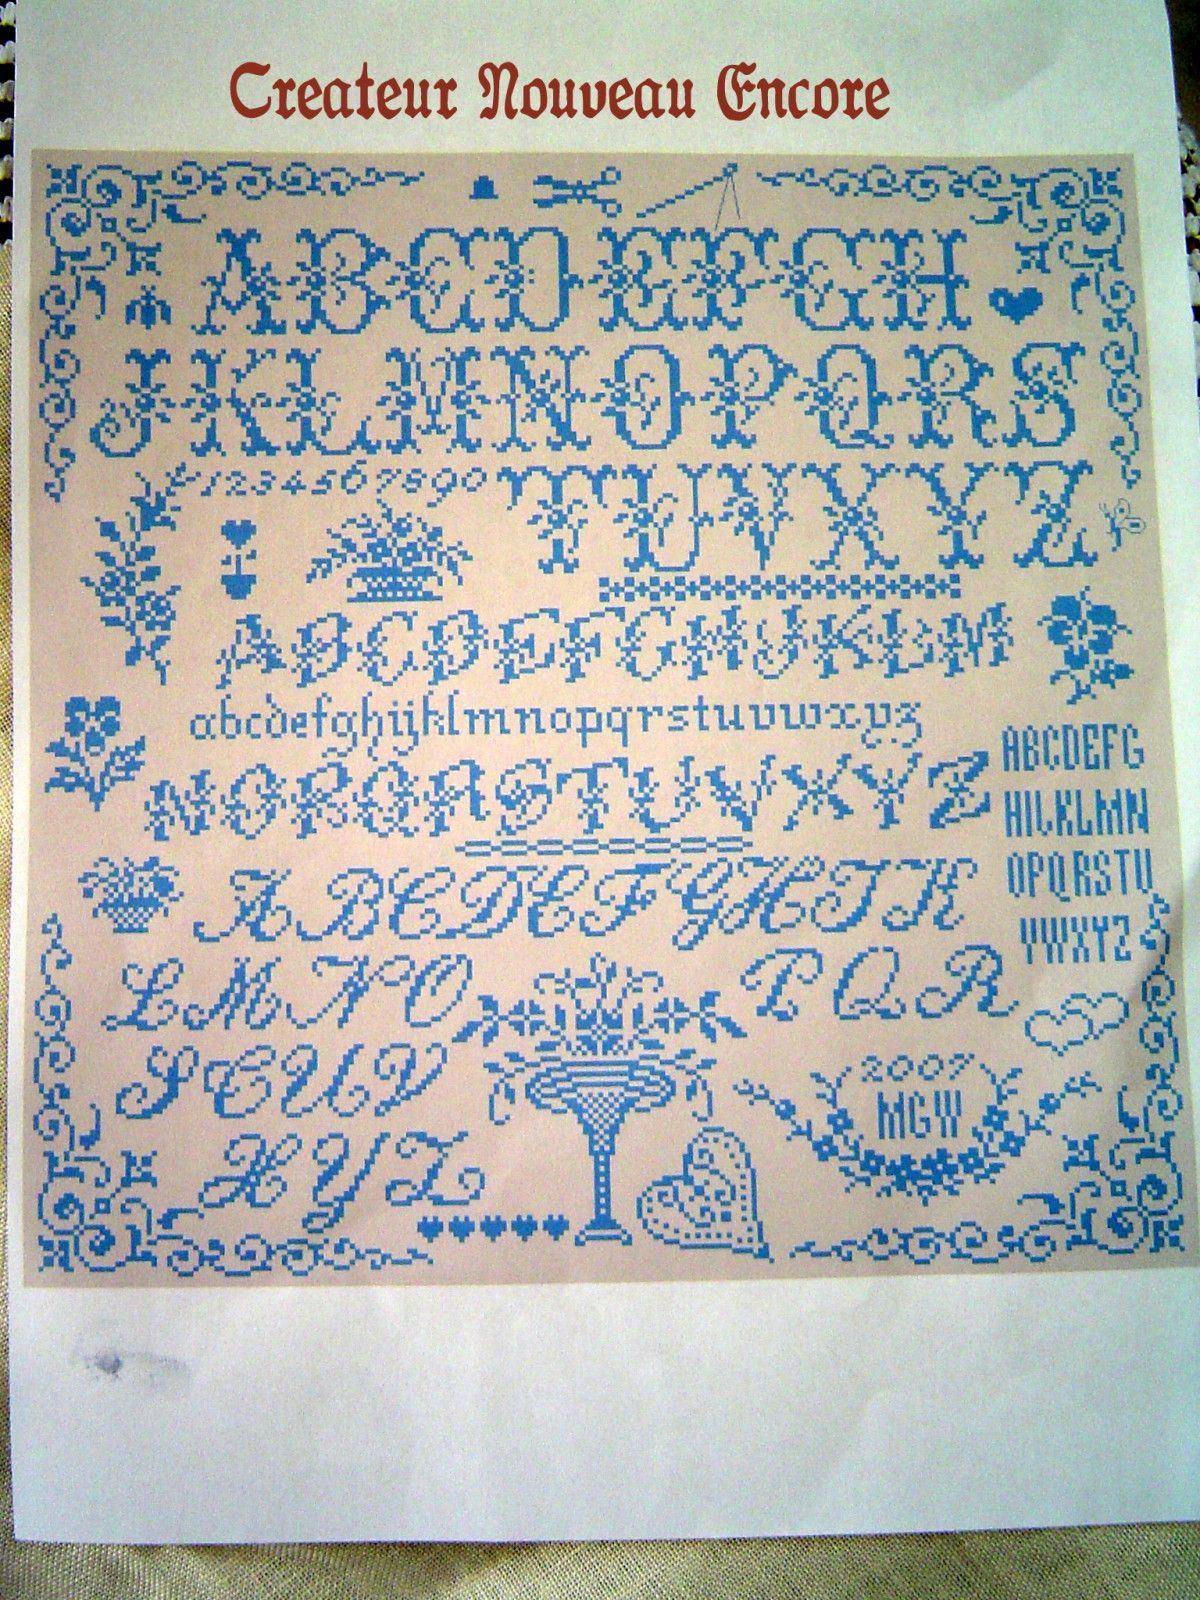 Createur Nouveau Encore
ABCDEFGH
JKLMNOPQRS
1234567890
TUVXYZ
ABCDEFGHIJKLM
abcdefghijklmnopqrstuvwxyz
NOPQRSTUVXYZ
ABCDEFG
HIJKLMN
OPQRSTU
VWXYZ
ABCDEFGHIJK
LMNO
PQR
STUV
XYZ
2007
MGW